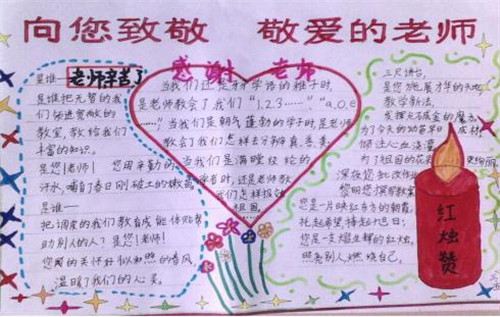 向您致敬 敬爱的老师
感谢 老师
是谁——老师辛苦了
是谁把无知的我
们领进宽敞的
教室,教给我们
丰富的知识。
是您!老师! 您用辛勤的
汗水,哺育了春日刚破土的嫩苗
是谁——
把调皮的我们教育成能体贴帮
助别人的人?是您!老师!
您的关怀好似和煦的春风
温暖了我们的心灵。
当我们还是牙牙学语的稚子时
是老师教会了我们“1.2.3……”“a.o.e
……”当我们是朝气蓬勃的学子时,是老师
教会了我们怎样去分辨真善美
当我们是满腹经纶的
学者时,还是老师教
我们怎样报效
祖国
三尺讲台,
是您施展才华的天地
教学新法,
发挥点石成金的魔力
为了今天的幼苗早日成材
倾注心血浇灌
为了祖国的花朵
深夜您批改作业
您是一片映红东方的朝霞
托起希望,捧起红日;
您是一支耀辉的红烛,
照亮别人,燃烧自己。
红烛赞